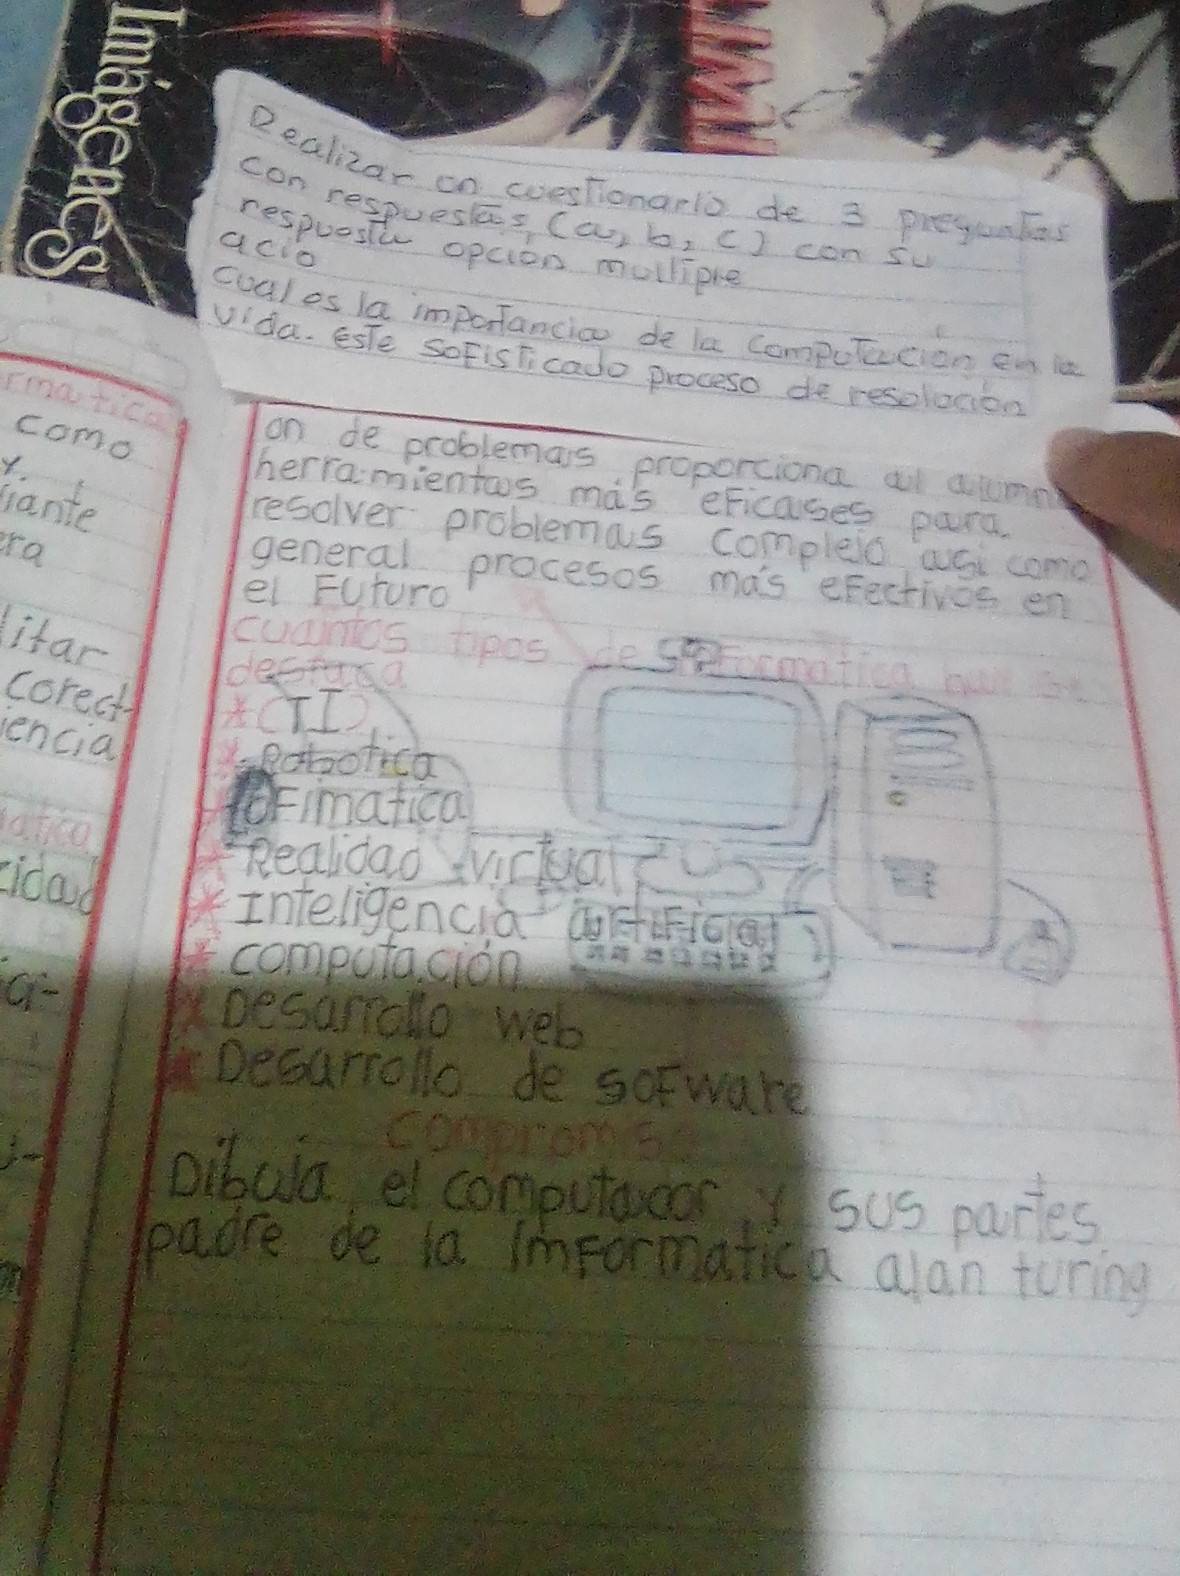 Imágenes
Realizar un cuestionario de 3 preguntas
con respuestas, (a, b, c) con su
respuesta opcion multiple
acio
cual es la importancia de la computacion en la
vida. este sofisticado proceso de resolocion
on de problemas proporciona al alumn
herramientas más eficases para
resolver problemas complejo asi como
general procesos más efectivos en
el Futuro
cuantos tipos de informatica hay se
destaca
* (TI)
* Robotica
* oFimatica
* Realidad virtual
* Inteligencia artificial
* computación
* Desarrollo web
* Desarrollo de sofware
Compromiso
Dibuja el computador y sus partes
padre de la imformatica alan turing
rmatica
como
y
iante
era
litar
corect
iencia
atica
cidad